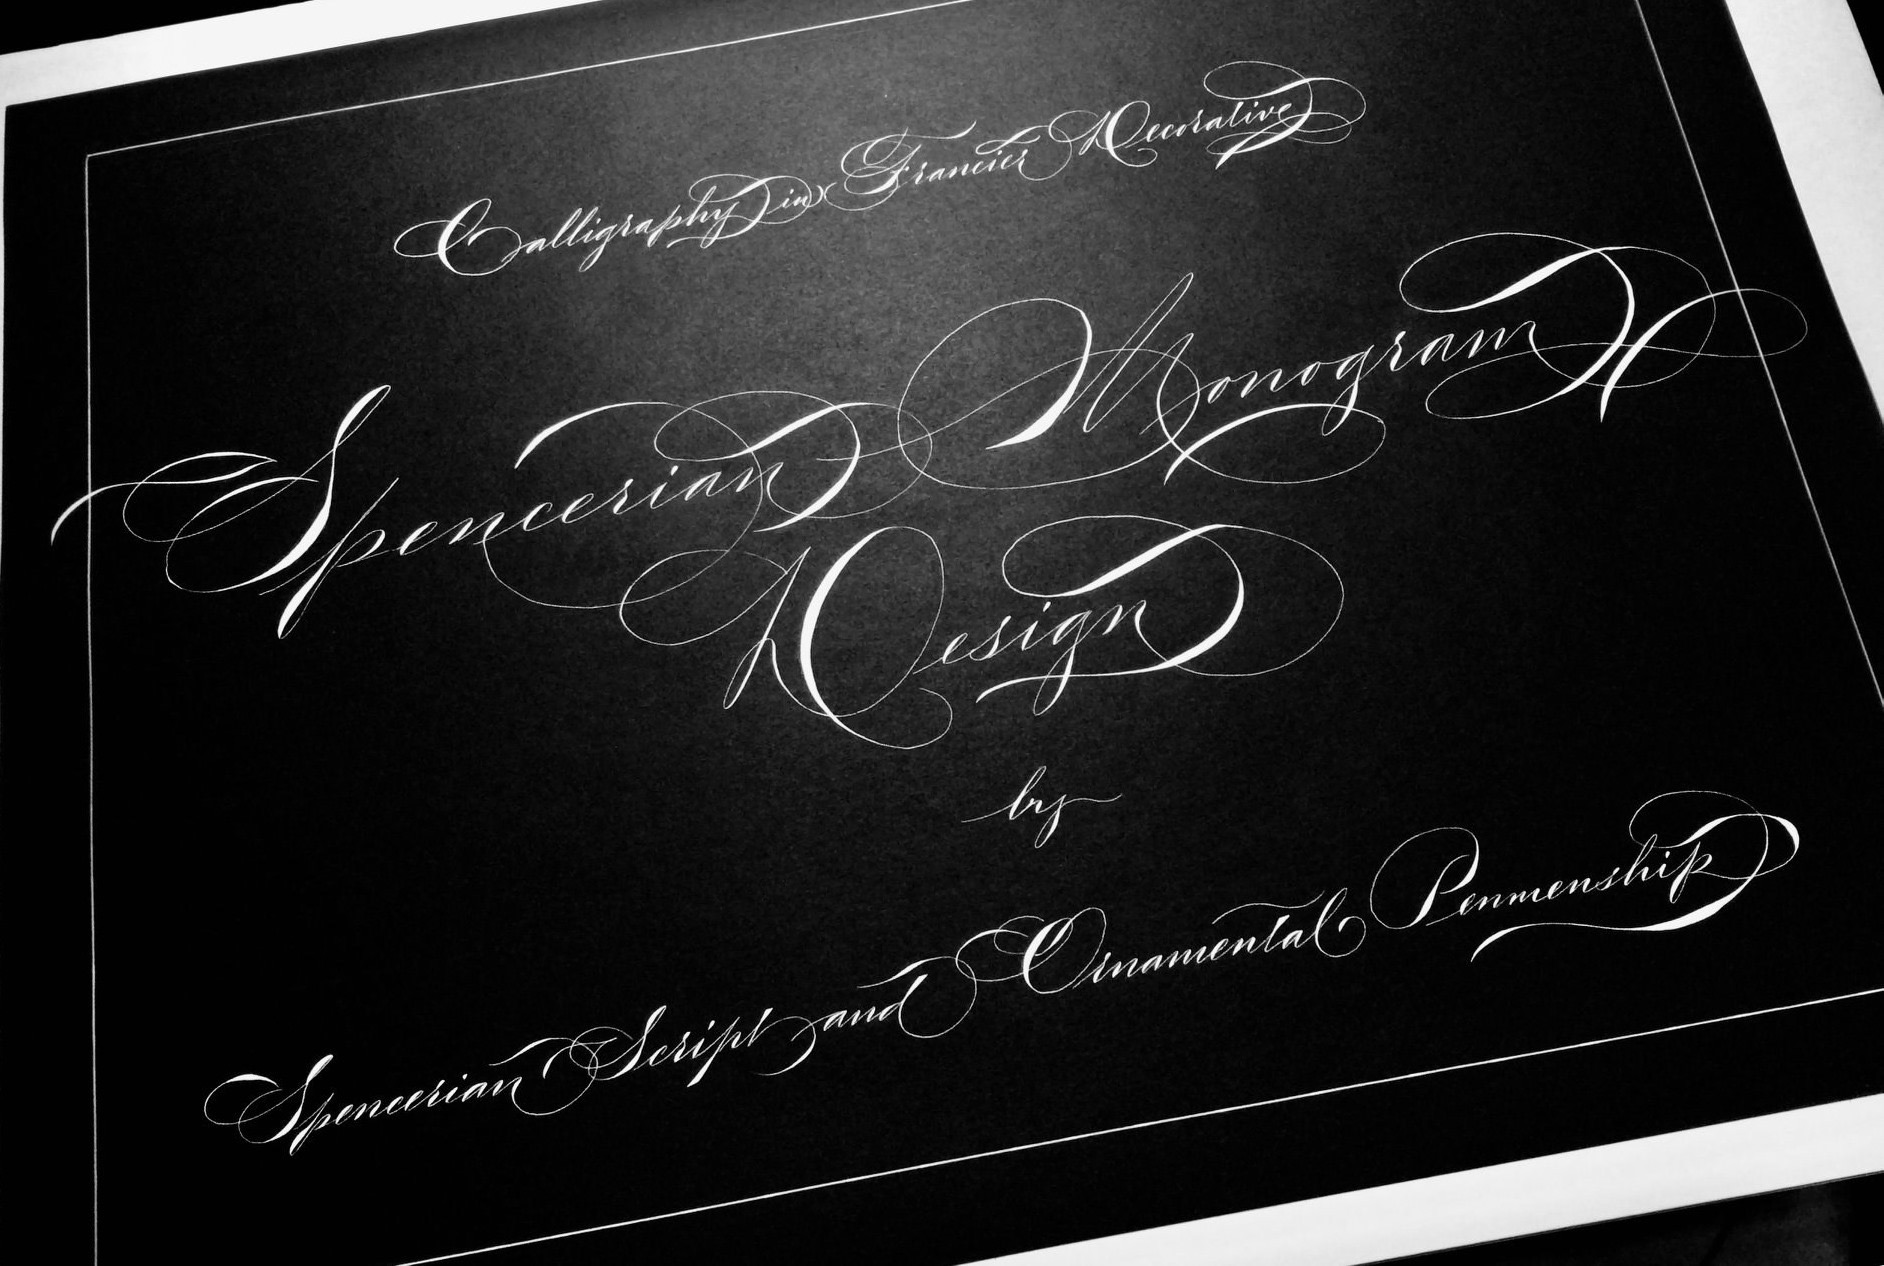 Calligraphy in Francier Decorative
Spencerian Monogram
Design
by
Spencerian Script and Ornamental Penmenship